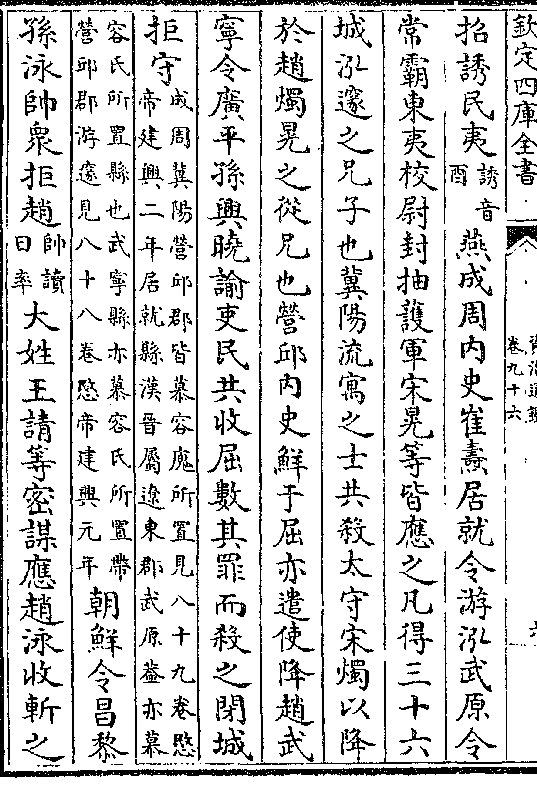 欽定四庫全書
資治通鑑
卷九十六
六
招誘民夷誘音酉燕成周内史崔燾居就令游泓武原令
常霸東夷校尉封抽護軍宋晃等皆應之凡得三十六
城泓邃之兄子也冀陽流寓之士共殺太守宋燭以降
於趙燭晃之從兄也營邱内史鮮于屈亦遣使降趙武
寧令廣平孫興曉諭吏民共收屈數其罪而殺之閉城
拒守成周冀陽營邱郡皆慕容廆所置見八十九卷愍帝建興二年居就縣漢晉屬遼東郡武原蓋亦慕
容氏所置縣也武寧縣亦慕容氏所置帶營邱郡游邃見八十八卷愍帝建興元年朝鮮令昌黎
孫泳帥衆拒趙帥讀曰率大姓王請等密謀應趙泳收斬之